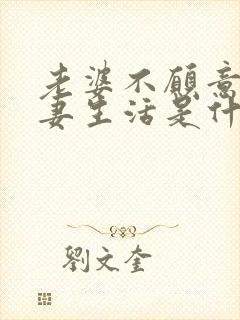 老婆不願意
妻生活是什
劉文奎